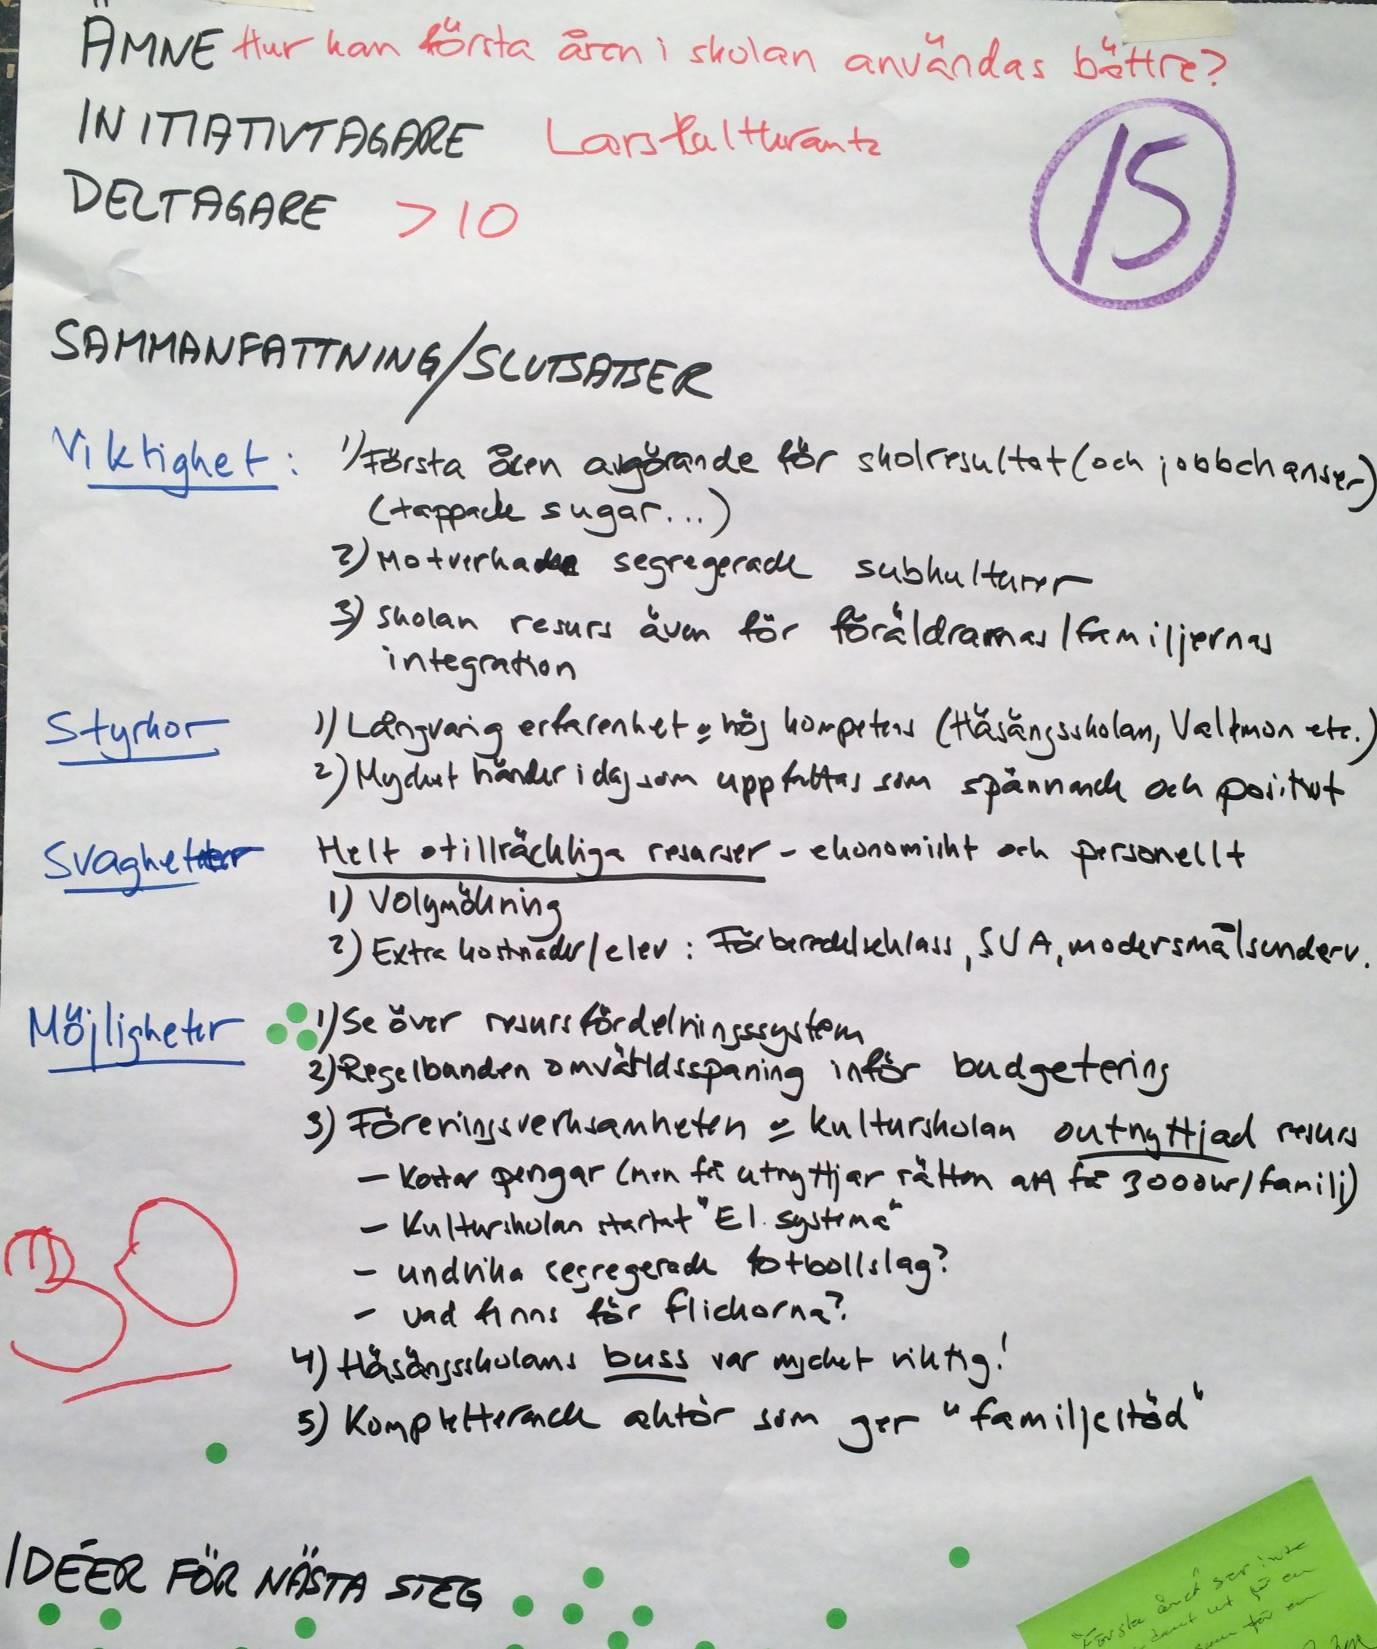 ÄMNE Hur kan första åren i skolan användas bättre?
INITIATIVTAGARE Lars
15
DELTAGARE >10
SAMMANFATTNING/SLUTSATSER
Viktighet: 1) Första åren avgörande för skolresultat (och jobbchanser)
(tappade sugar...)
2) Motverka segregerade subkulturer
3) Skolan resurs även för föräldrarnas/familjernas
integration
Styrkor 1) Långvarig erfarenhet = hög kompetens (Håsängsskolan, Vallmon etc.)
2) Mycket händer idag som uppfattas som spännande och positivt
Svagheter Helt otillräckliga resurser - ekonomiskt och personellt
1) Volymökning
2) Extra kostnader/elev: Förberedelseklass, SVA, modersmålsunderv.
Möjligheter 1) Se över resursfördelningssystem
2) Regelbunden omvärldsspaning inför budgetering
3) Föreningsverksamheten = kulturskolan outnyttjad resurs
- Kostar pengar (men få utnyttjar rätten att få 3000kr/familj)
- Kulturskolan startat "El systema"
- undvika segregerade fotbollslag?
- vad finns för flickorna?
30
4) Håsängsskolans buss var mycket viktig!
5) Kompletterande aktör som ger "familjestöd"
IDÉER FÖR NÄSTA STEG
"Första året" ser inte
ut för en
som för en